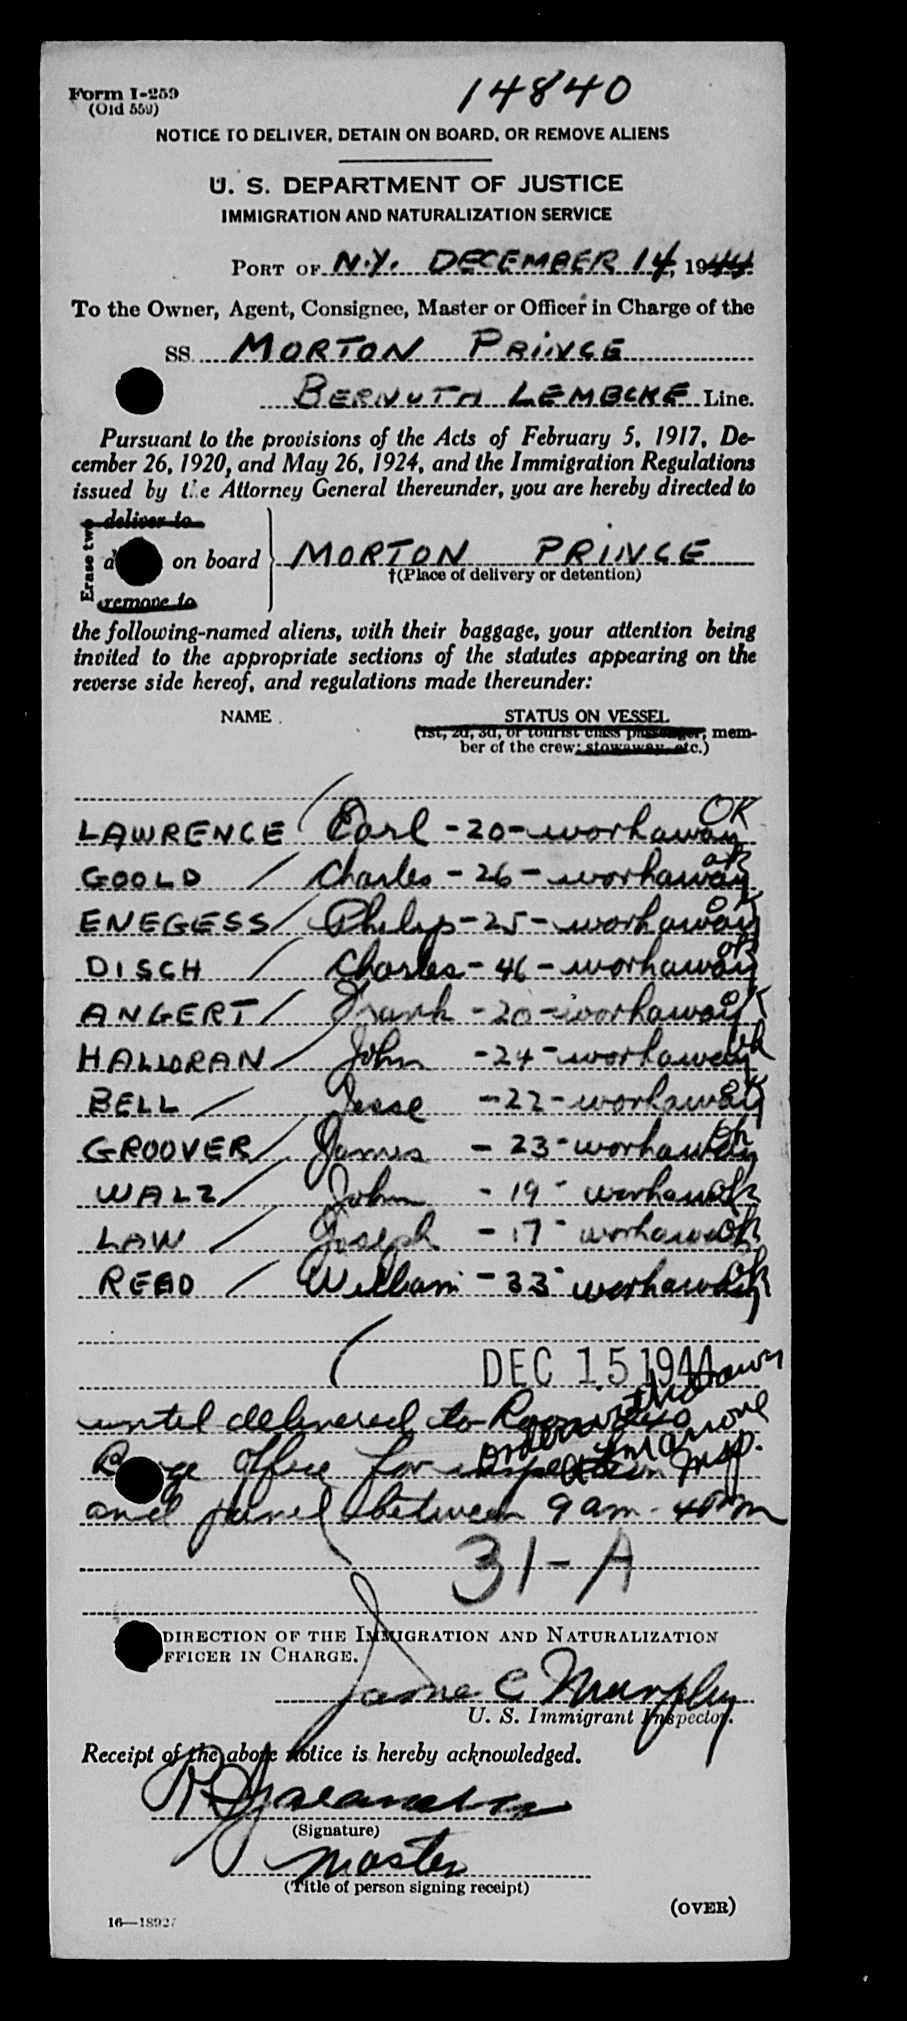 Form I-259
(Old 559)
14840
NOTICE TO DELIVER, DETAIN ON BOARD, OR REMOVE ALIENS
U. S. DEPARTMENT OF JUSTICE
IMMIGRATION AND NATURALIZATION SERVICE
PORT OF N.Y. DECEMBER 14, 1944
To the Owner, Agent, Consignee, Master or Officer in Charge of the
SS. MORTON PRINCE
BERNUTH LEMBCKE Line.
Pursuant to the provisions of the Acts of February 5, 1917, De-
cember 26, 1920, and May 26, 1924, and the Immigration Regulations
issued by the Attorney General thereunder, you are hereby directed to
Erase two
deliver to
on board MORTON PRINCE
†(Place of delivery or detention)
remove to
the following-named aliens, with their baggage, your attention being
invited to the appropriate sections of the statutes appearing on the
reverse side hereof, and regulations made thereunder:
NAME STATUS ON VESSEL
(1st, 2d, 3d, or tourist class passenger, mem-
ber of the crew; stowaway, etc.)
LAWRENCE Earl - 20 - workaway OK
GOOLD / Charles - 26 - workaway ok
ENEGESS / Philip - 25 - workaway ok
DISCH / Charles - 46 - workaway ok
ANGERT / Frank - 20 - workaway ok
HALLORAN / John - 24 - workaway ok
BELL / Jesse - 22 - workaway ok
GROOVER / James - 23 - workaway ok
WALZ / John - 19 - workaway ok
LAW / Joseph - 17 - workaway ok
READ / William - 33 - workaway ok
DEC 15 1944
until delivered to Room
Barge Office for inspection
Order withdrawn
Insp.
and between 9 am - 4 pm
31-A
DIRECTION OF THE IMMIGRATION AND NATURALIZATION
OFFICER IN CHARGE.
James C Murphy
U. S. Immigrant Inspector.
Receipt of the above notice is hereby acknowledged.
(Signature)
Master
(Title of person signing receipt)
(OVER)
16—18927